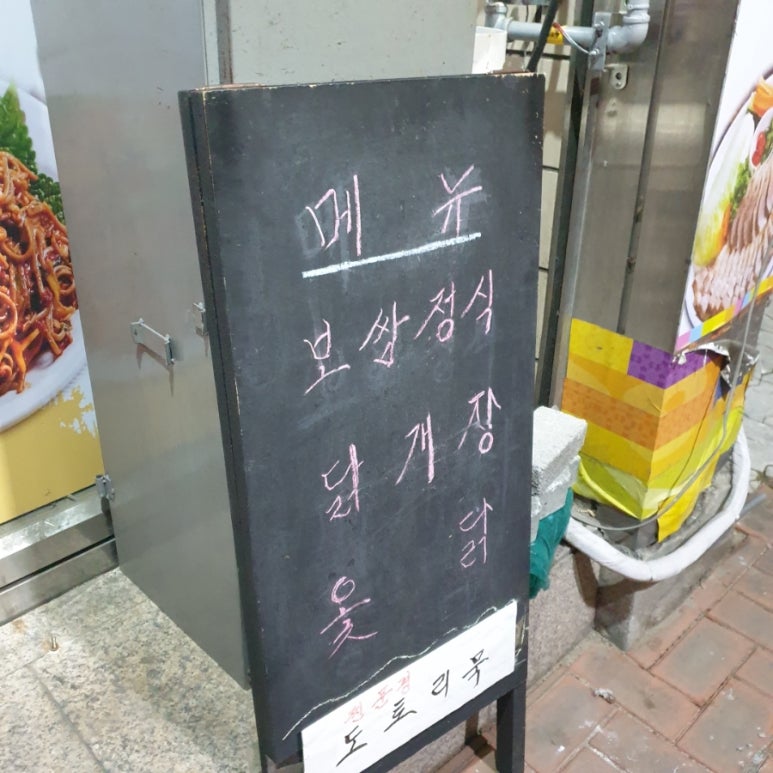 메 뉴
보쌈정식
닭개장
옻 닭
도토리묵